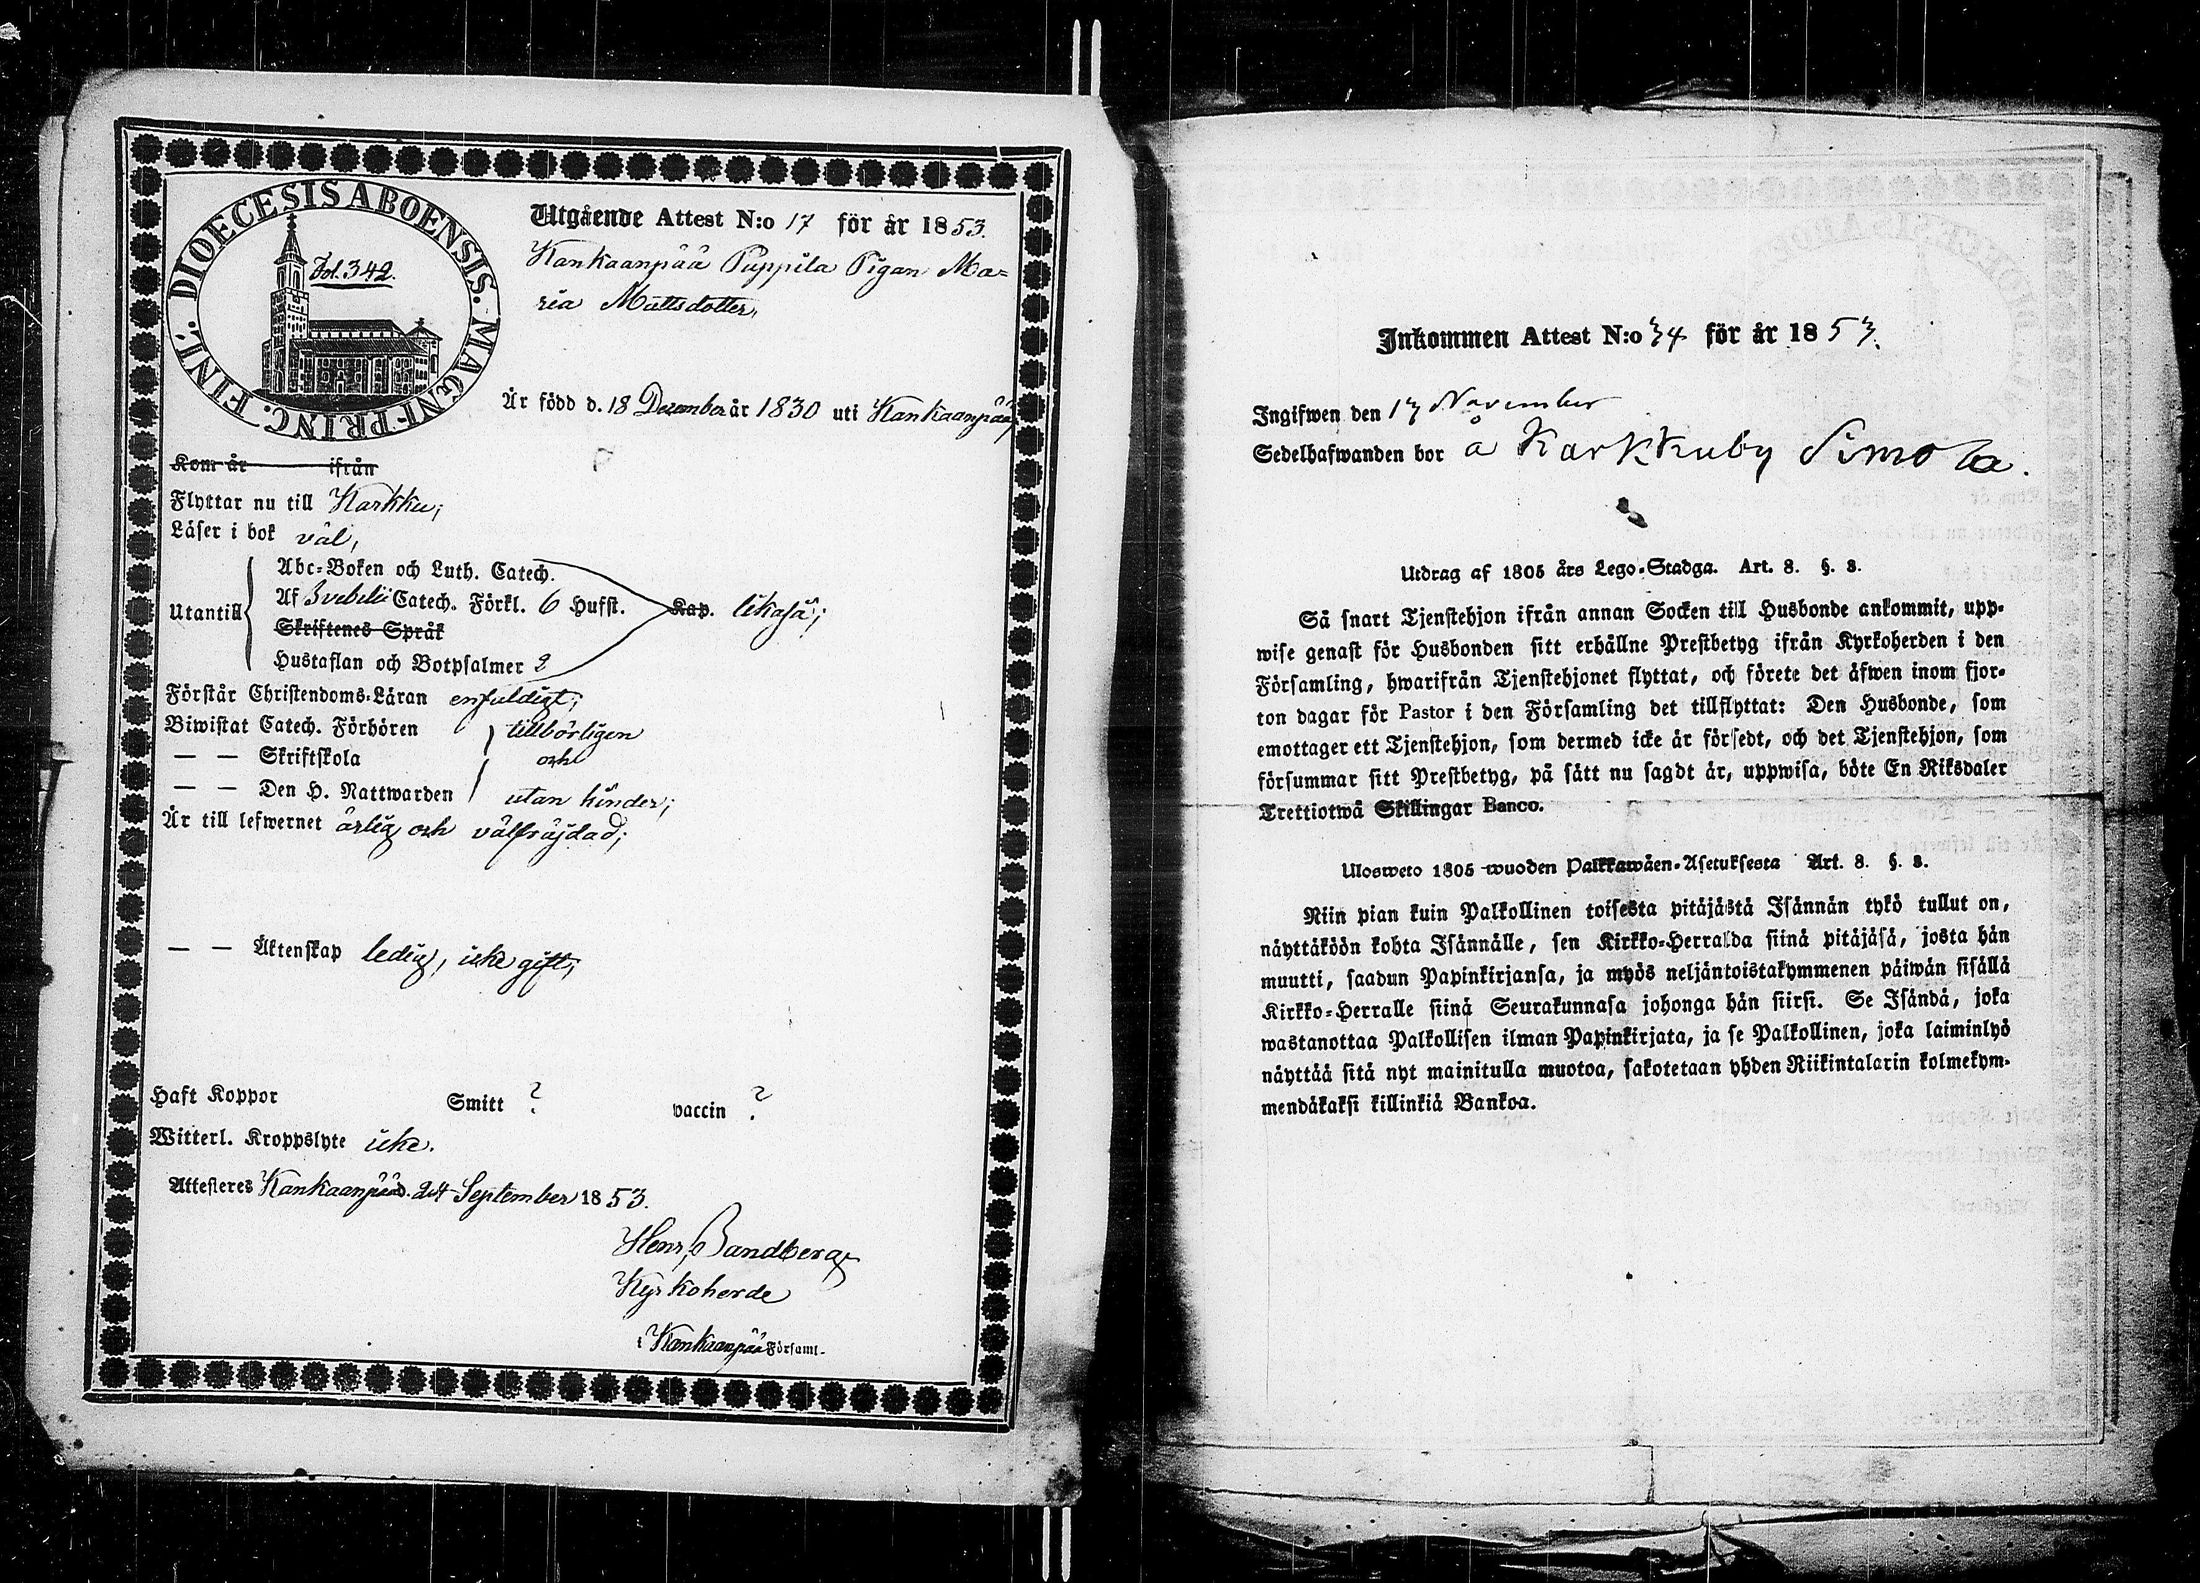 DIOECESIS ABOENSIS. MAGNI-PRINC. FINL.
Fol. 342.
Utgående Attest N:o 17 för år 1853.
Kankaanpää Puppila Pigan Ma=
ria Mattsdotter,
Är född d. 18 December år 1830 uti Kankaanpää,
Kom år ifrån
Flyttar nu till Karkku;
Läser i bok väl,
Utantill
Abc-Boken och Luth. Catech.
Af Svebelii Catech. Förkl. 6 Hufst. Kap. likaså;
Skriftenes Språk
Hustaflan och Botpsalmer 2
Förstår Christendoms-Läran enfuldigt;
Biwistat Catech. Förhören tillbörligen
— — Skriftskola och
— — Den H. Nattwarden utan hinder;
Är till lefwernet ärlig och välfräjdad;
— — Äktenskap ledig, icke gift;
Haft Koppor Smitt ? vaccin ?
Witterl. Kroppslyte icke.
Attesteres Kankaanpää d. 24 September 1853.
Henr. Sandberg
Kyrkoherde
i Kankaanpää Församl.
Inkommen Attest N:o 34 för år 1853.
Ingifwen den 13 November
Sedelhafwanden bor å Karkkuby Simola.
Utdrag af 1805 års Lego-Stadga. Art. 8. §. 3.
Så snart Tjenstehjon ifrån annan Socken till Husbonde ankommit, upp-
wise genast för Husbonden sitt erhållne Prestbetyg ifrån Kyrkoherden i den
Församling, hwarifrån Tjenstehjonet flyttat, och förete det äfwen inom fjor-
ton dagar för Pastor i den Församling det tillflyttat: Den Husbonde, som
emottager ett Tjenstehjon, som dermed icke är försedt, och det Tjenstehjon, som
försummar sitt Prestbetyg, på sätt nu sagdt är, uppwisa, böte En Riksdaler
Trettiotwå Skillingar Banco.
Ulosweto 1805 wuoden Palkkawäen-Asetuksesta Art. 8. §. 3.
Niin pian kuin Palkollinen toisesta pitäjästä Isännän tykö tullut on,
näyttäköön kohta Isännälle, sen Kirkko-Herralda siinä pitäjäsä, josta hän
muutti, saadun Papinkirjansa, ja myös neljäntoistakymmenen päiwän sisällä
Kirkko-Herralle siinä Seurakunnasa johonga hän siirsi. Se Isändä, joka
wastanottaa Palkollisen ilman Papinkirjata, ja se Palkollinen, joka laiminlyö
näyttää sitä nyt mainitulla muotoa, sakotetaan yhden Riikintalarin kolmekym-
mendäkaksi killinkiä Bankoa.